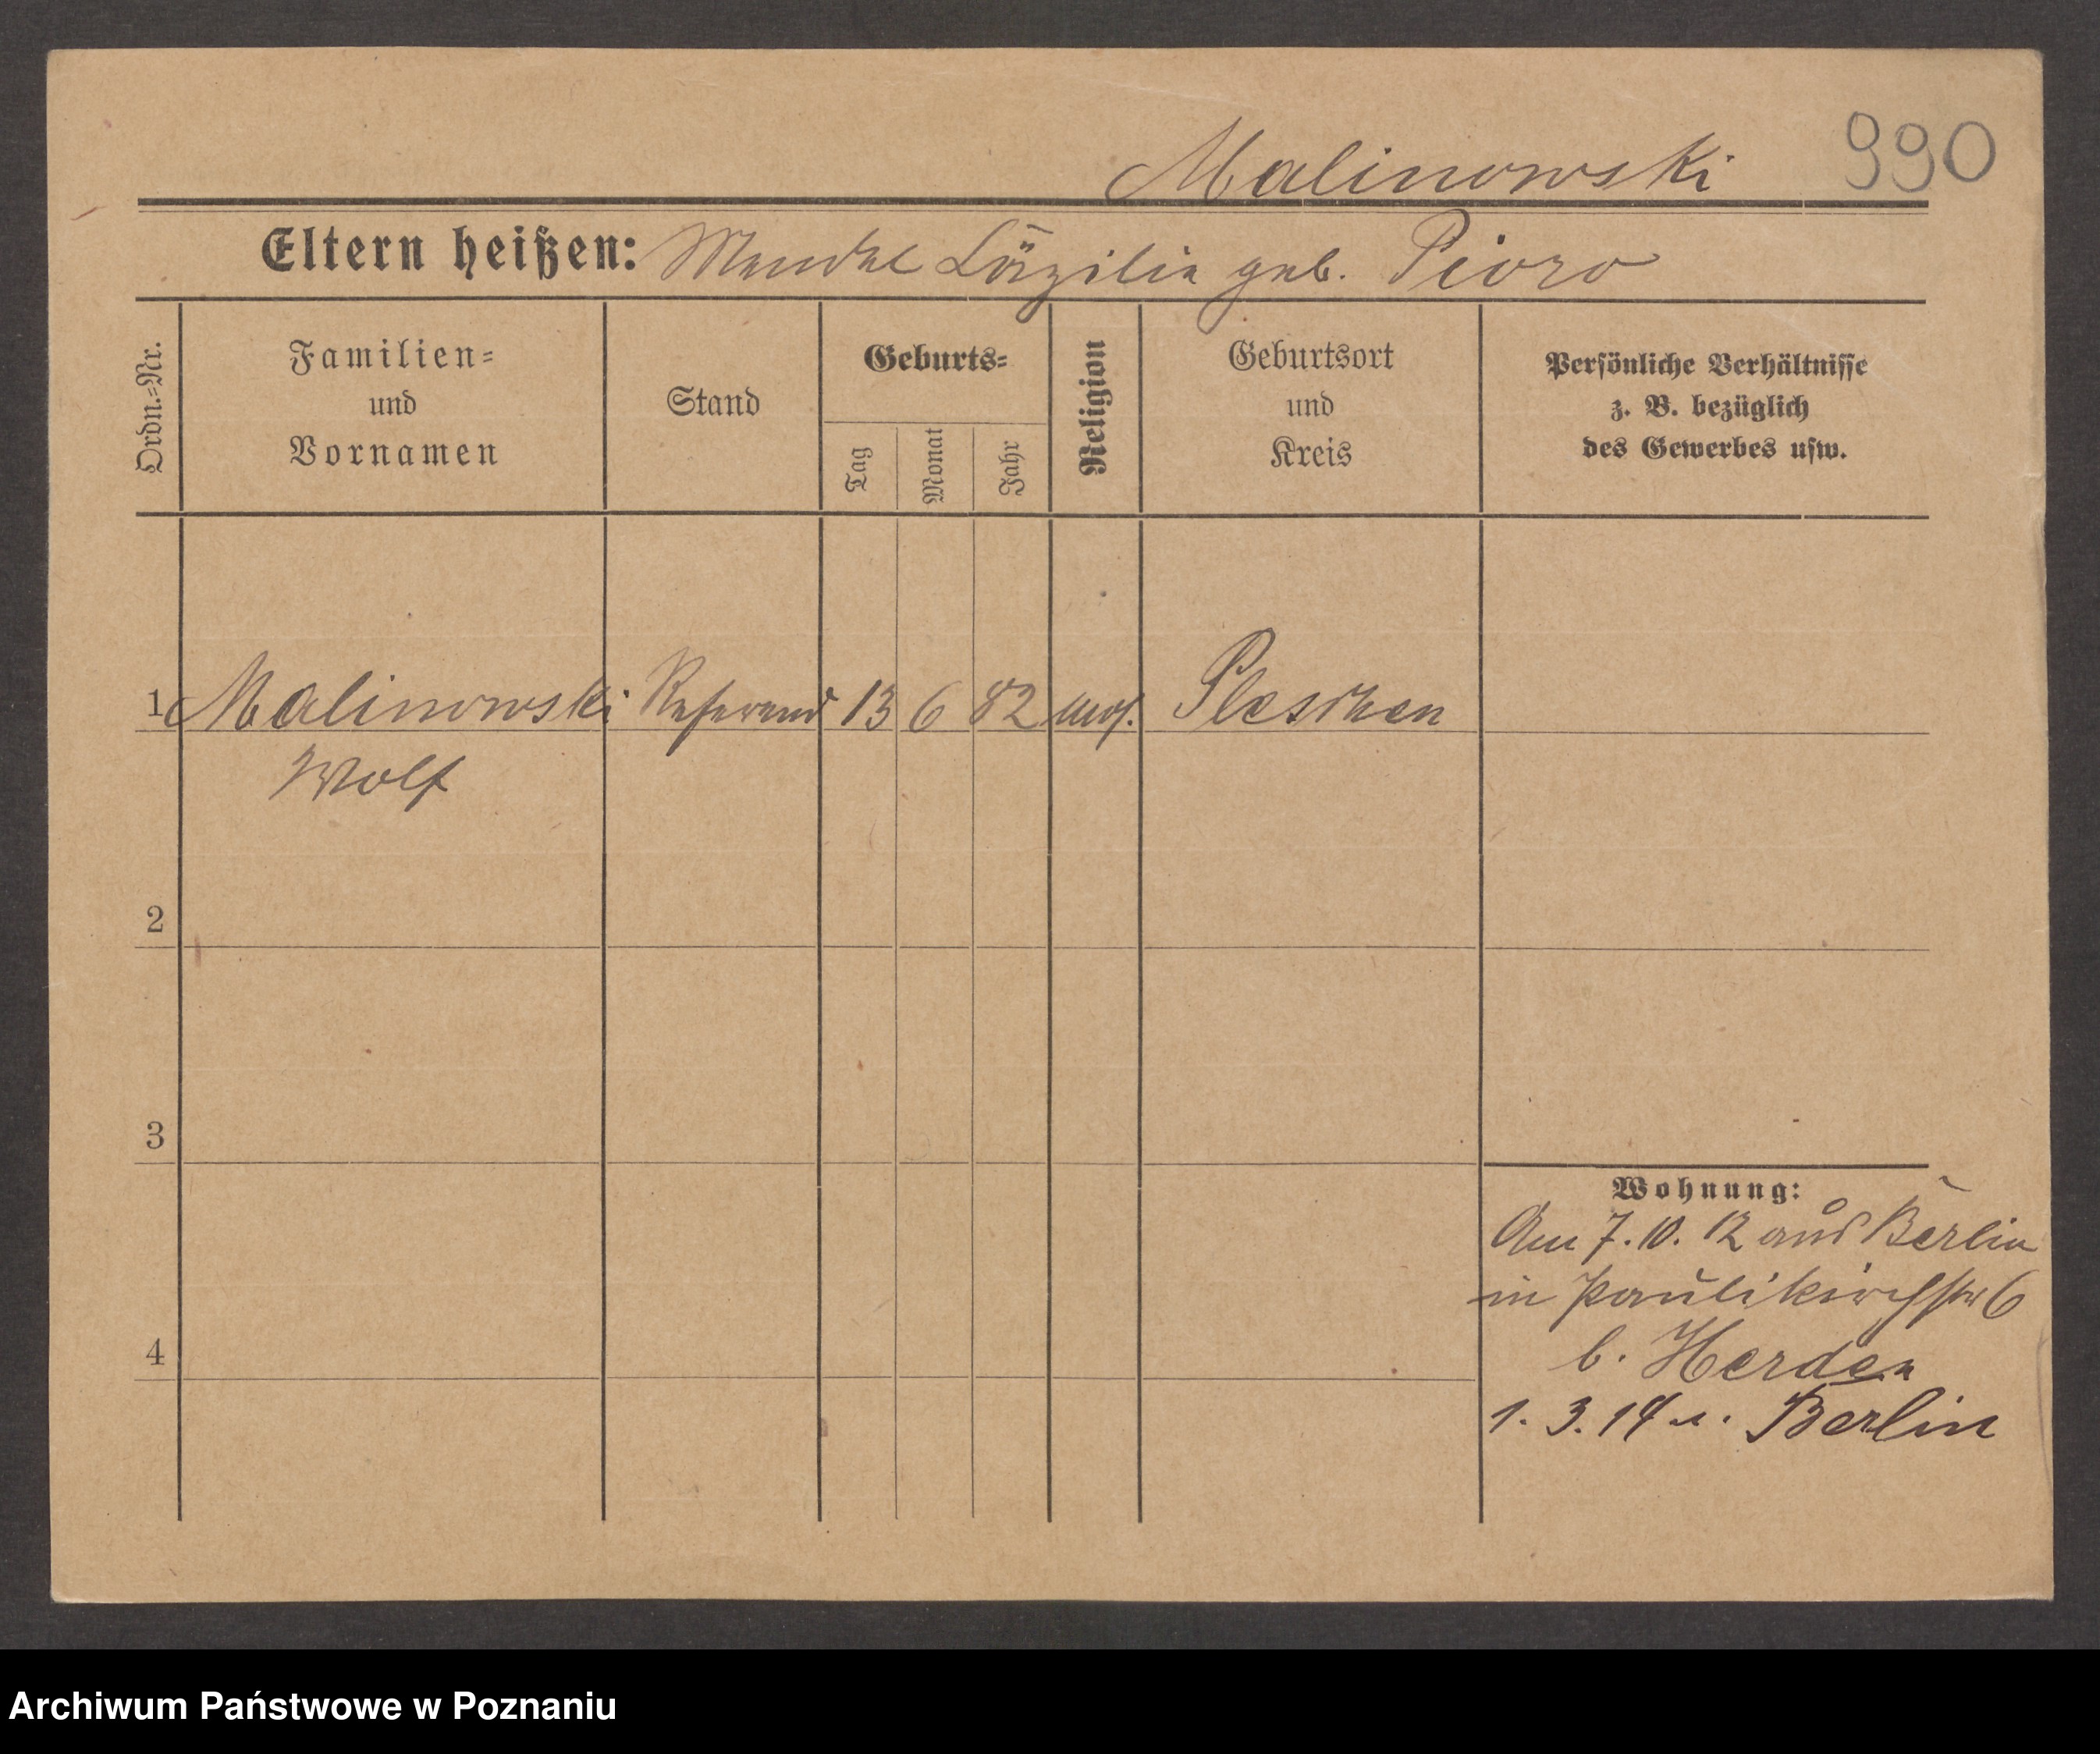 Malinowski 990
Eltern heißen: Mendel Cäzilia geb. Pioro
Ordn.=Nr.
Familien=
und
Vornamen
Stand
Geburts=
Tag
Monat
Jahr
Religion
Geburtsort
und
Kreis
Persönliche Verhältnisse
z. B. bezüglich
des Gewerbes usw.
1 Malinowski Referend 13 6 82 mos. Pleschen
Wolf
2
3
4
Wohnung:
Am 7.10.12 aus Berlin
in Paulikirchstr 6
b. Herden
1. 3. 14 n. Berlin
Archiwum Państwowe w Poznaniu